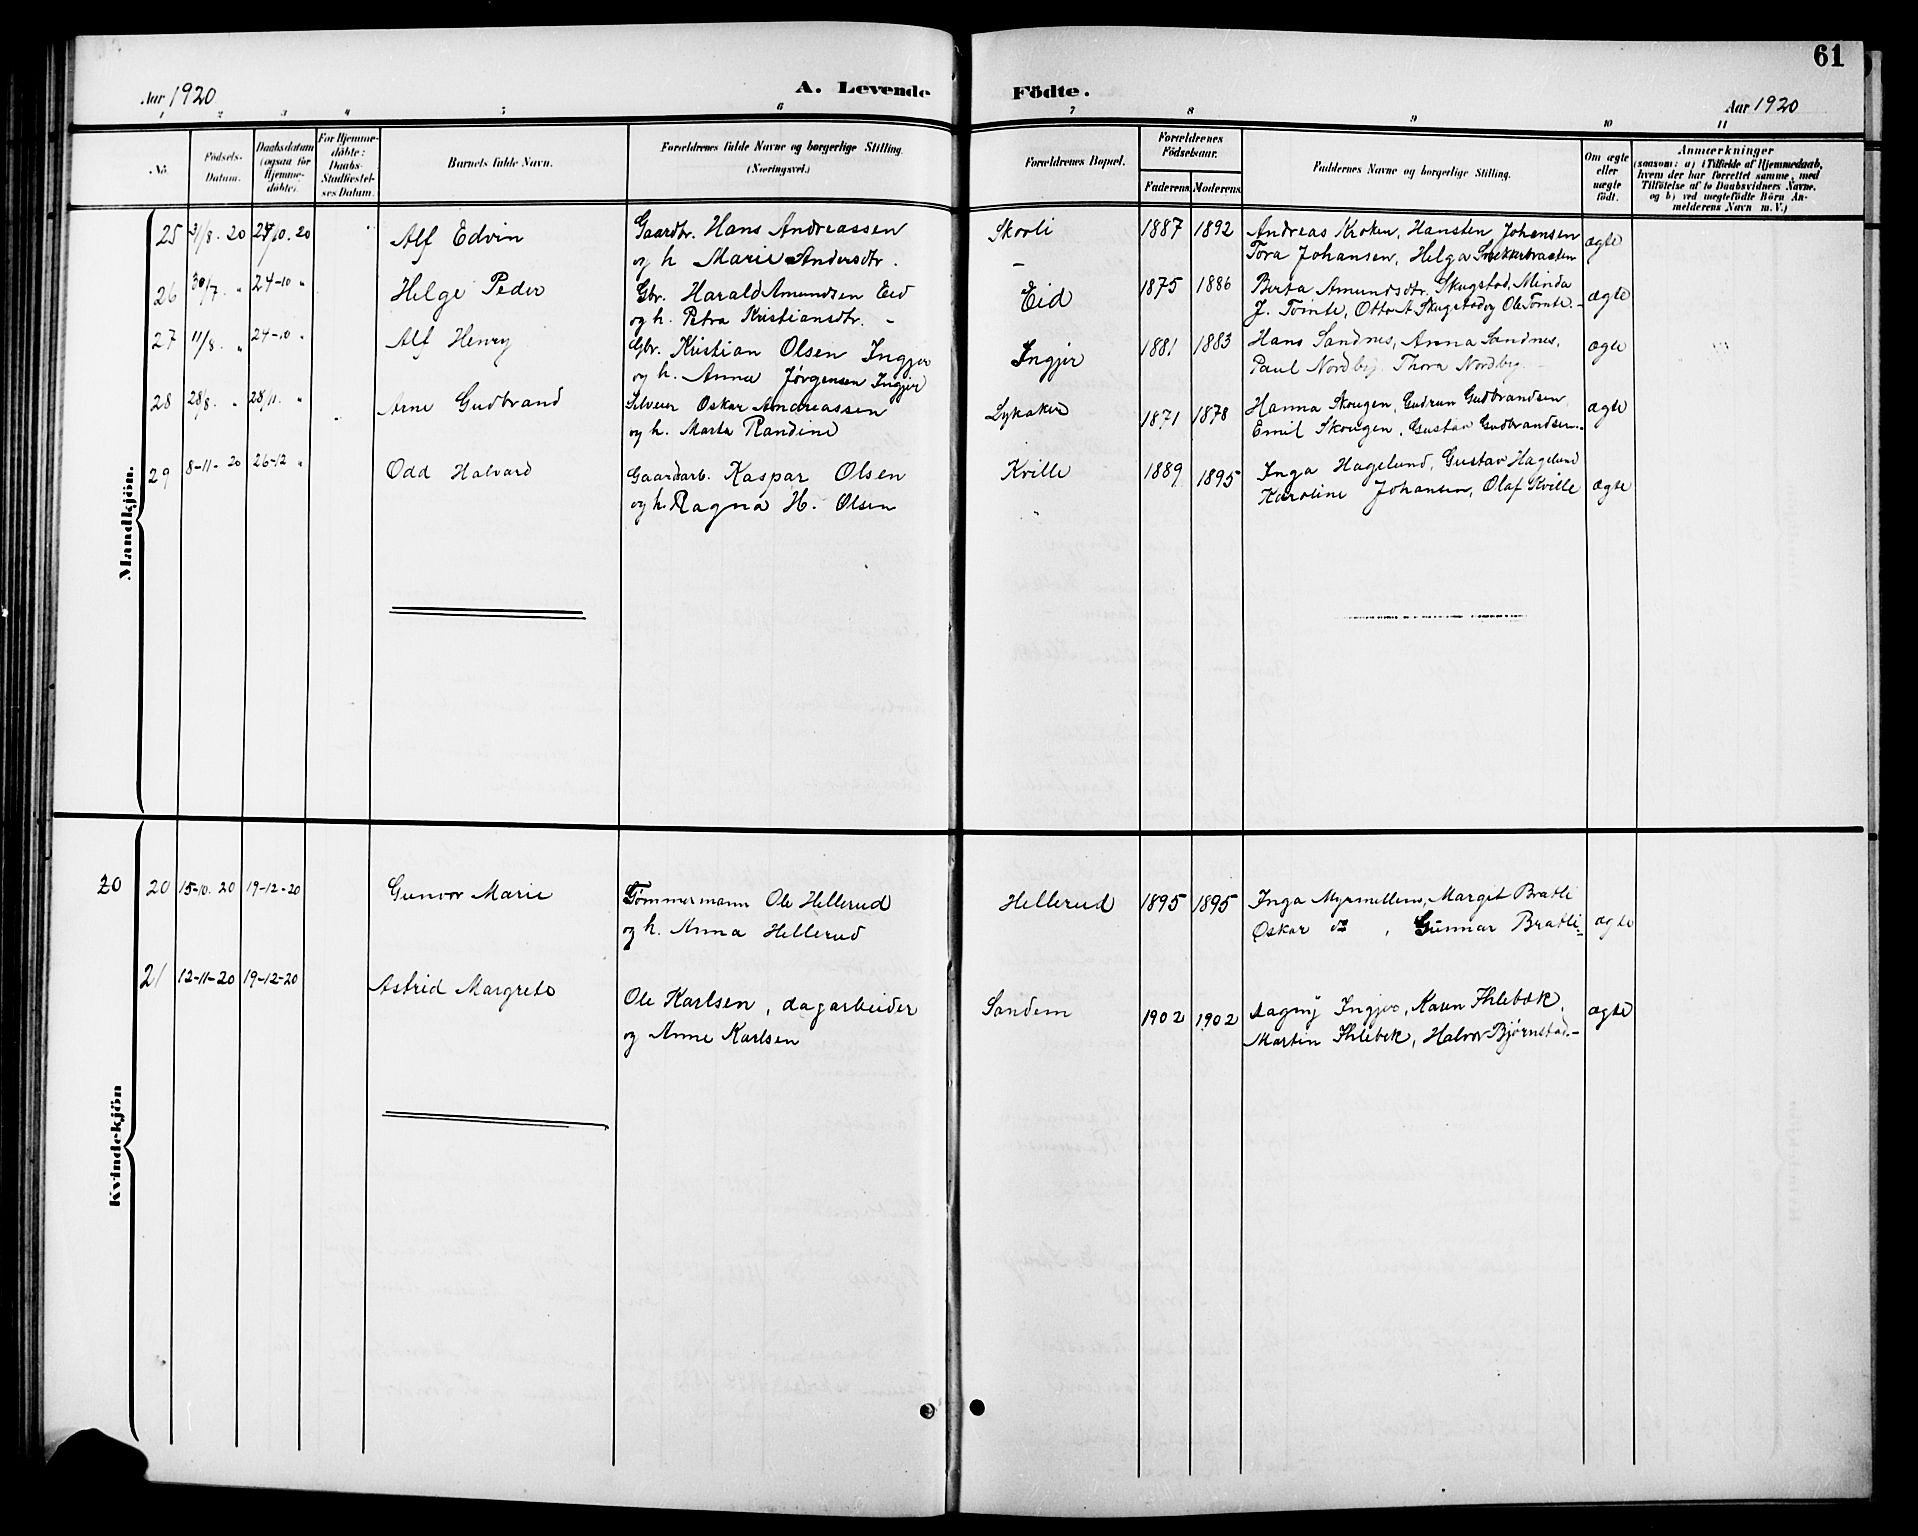 61
Aar 1920
A. Levende Födte.
Aar 1920
1 2 3 4 5 6 7 8 9 10 11
No.
Födsels-Datum.
Daabsdatum (ogsaa for Hjemmedöbte).
For Hjemmedöbte: Daabs-Stadfæstelses Datum.
Barnets fulde Navn.
Forældrenes fulde Navne og borgerlige Stilling. (Næringsvei.)
Forældrenes Bopæl.
Forældrenes Födselsaar.
Faderens. Moderens.
Faddernes Navne og borgerlige Stilling.
Om ægte eller uægte födt.
Anmærkninger
(saasom: a) i Tilfælde af Hjemmedaab, hvem der har forrettet samme, med Tilföielse af to Daabsvidners Navne, og b) ved uægtefödte Börn Anmelderens Navn m. V.)
Mandkjön.
25 31/8. 20 24/10. 20 Alf Edvin Gaardbr. Hans Andreassen Skovli 1887 1892 Andreas Kroken, Hansten Johansen ægte
og h Marie Andersdtr. Tora Johansen, Helga
26 30/7. " 24-10 " Helge Peder Gbr. Harald Amundsen Eid Eid 1875 1886 Berta Amundsdtr. Skugstad, Minda ægte
og h. Petra Kristiansdtr. - J. Tömte, Otto A Skugstad og Ole Tömte. -
27 11/8. " 24-10 " Alf Henry Gbr. Kristian Olsen Ingjer Ingjer 1881 1883 Hans Sandnes, Anna Sandnes, ægte
og h. Anna Jørgensen Ingjer Paul Nordby, Thora Nordby.
28 28/8. " 28/11. " Arne Gudbrand Oskar Andreassen Lykaker 1871 1878 Hanna Skougen, Gudrun Gudbrandsen, ægte
og h. Marta Randine Emil Skougen, Gustav Gudbrandsen.
29 8-11- 20 26-12 " Odd Halvard Gaardarb. Kaspar Olsen Kville 1889 1895 Inga Hagelund, Gustav Hagelund ægte
og h. Ragna H. Olsen " Karoline Johansen, Olaf Kville
Kvindekjön
20 20 15-10. 20 19-12-20 Gunvor Marie Tømmermann Ole Hellerud Hellerud 1895 1895 Inga Margit Bratli ægte
og h. Anna Hellerud Oskar do , Gunnar Bratli
21 12-11-20 19-12-20 Astrid Margrete Ole Karlsen, dagarbeider Sandem 1902 1902 Dagny Ingjer, Karen Ihlebæk, ægte
og Anne Karlsen Martin Ihlebek, Halvor Bjørnstad.-